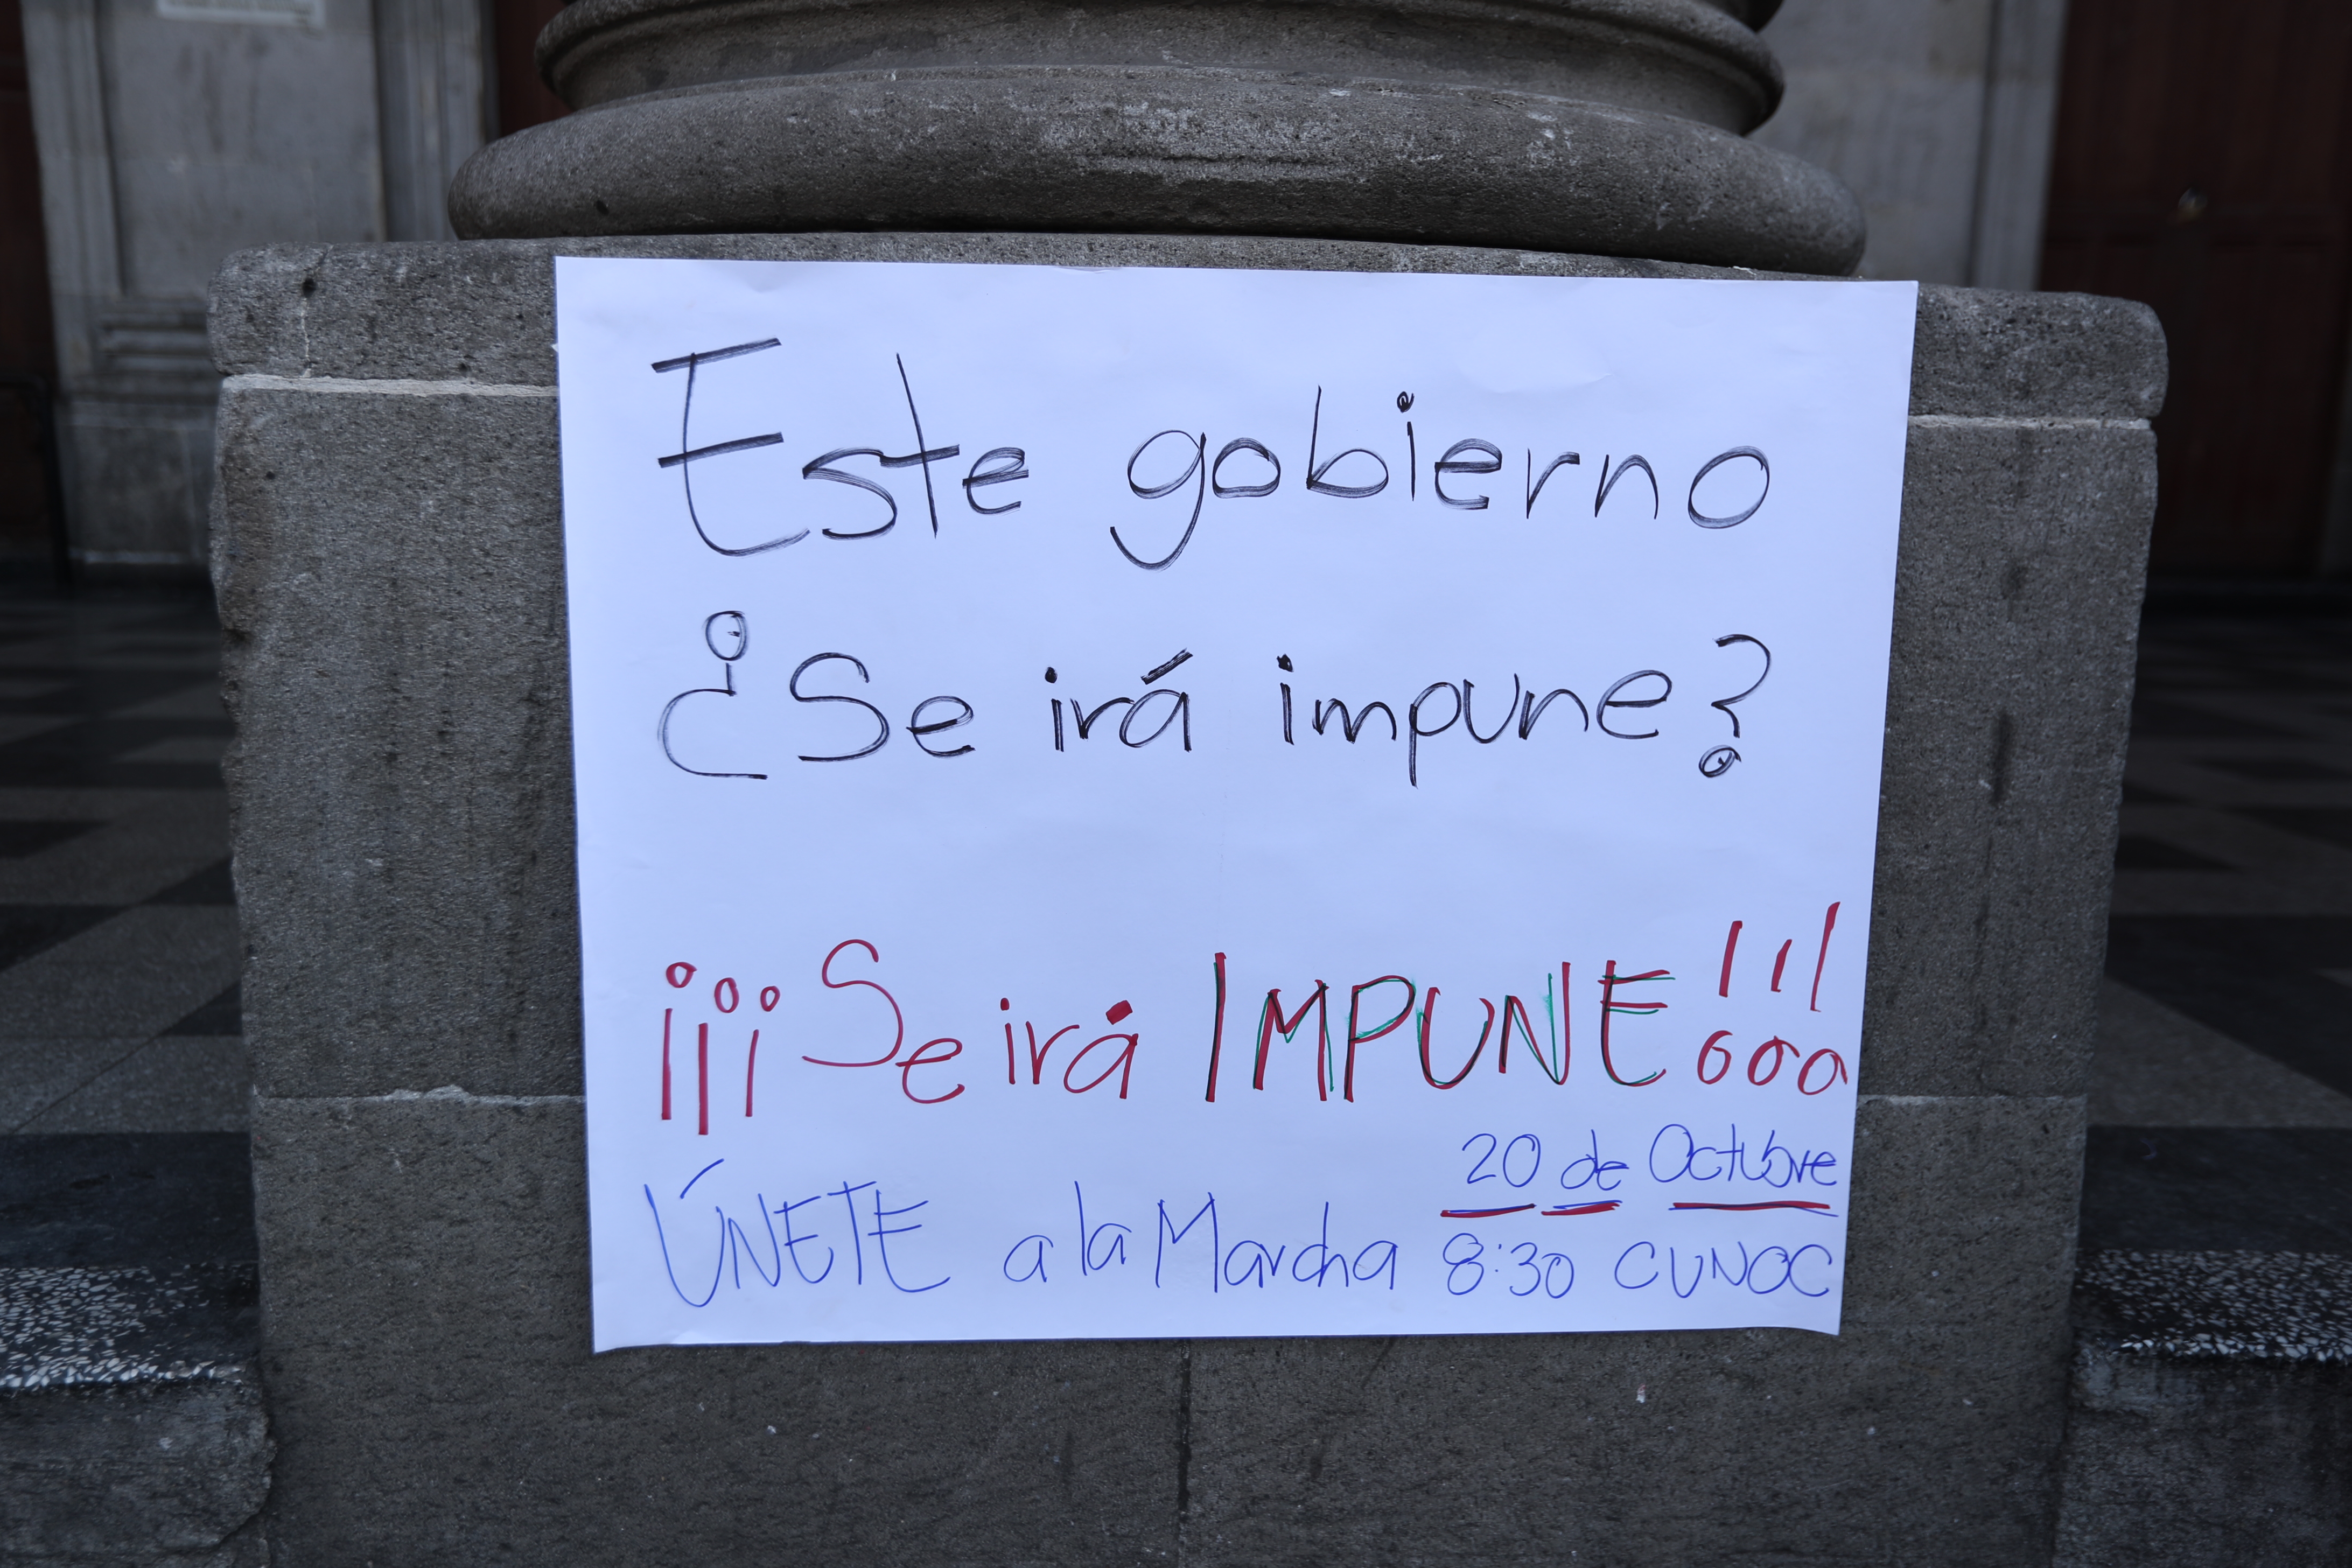 Este gobierno
¿Se irá impune?
¡¡¡Se irá IMPUNE!!!
20 de Octubre
ÚNETE a la Marcha 8:30 CUNOC